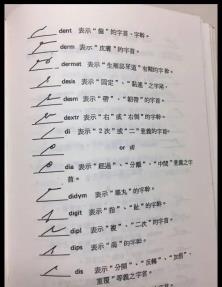 dent 表示“齒”的字首、字幹。
derm 表示“皮膚”的字首。
dermat 表示“生理認牙道”有關的字幹。
desis 表示“固定”、“黏連”之字尾。
desm 表示“帶”、“韌帶”的字首。
dextr 表示“右”或“右側”的字幹。
di 表示“2次”或“二”意義的字首。
or di
dia 表示“經過”、“分離”、“中間”意義之字
首。
didym 表示“睪丸”的字幹。
digit 表示“指”、“趾”的字幹。
dipl 表示“複”、“二次”的字首。
dips 表示“渴”的字幹。
dis 表示“分開”、“反轉”、“加倍”、
重覆”等義之字首。